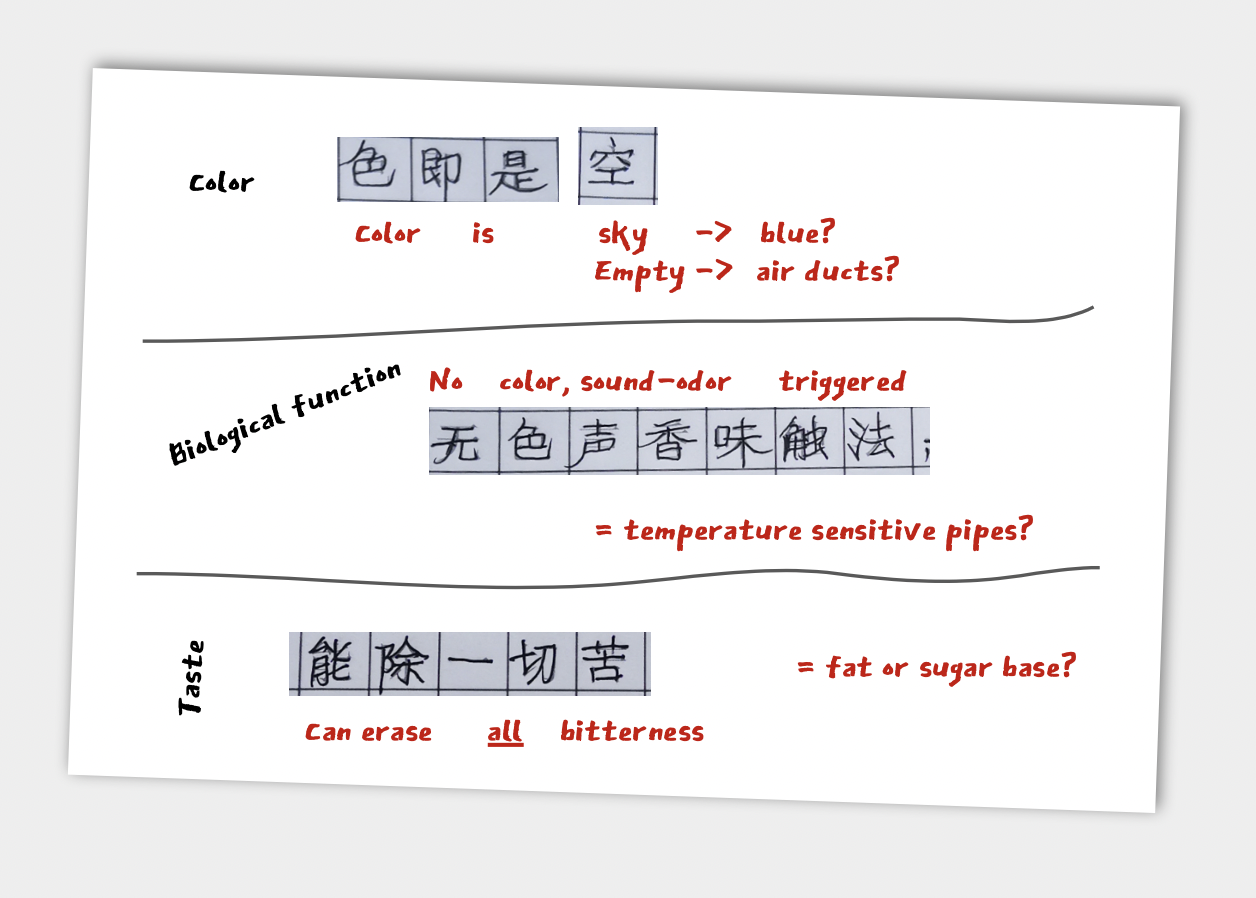 Color
色即是 空
Color is sky -> blue?
Empty -> air ducts?
Biological function
No color, sound-odor triggered
无色声香味触法;
= temperature sensitive pipes?
Taste
能除一切苦
= fat or sugar base?
Can erase all bitterness